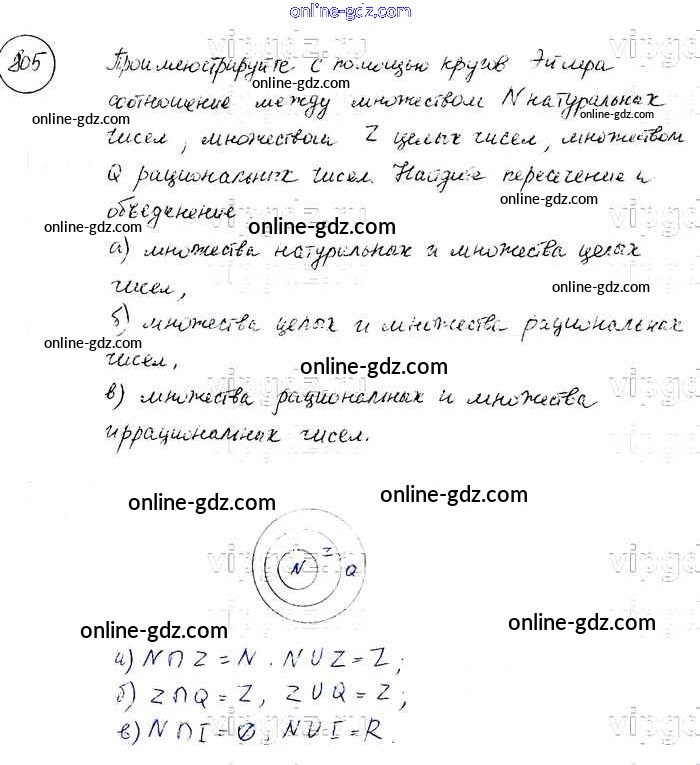 online-gdz.com
805
Проиллюстрируйте с помощью кругов Эйлера
online-gdz.com
соотношение между множеством N натуральных
online-gdz.com online-gdz.com
чисел, множеством Z целых чисел, множеством
Q рациональных чисел. Найдите пересечение и
online-gdz.com online-gdz.com
объеденение
online-gdz.com online-gdz.com
а) множества натуральных и множества целых
чисел,
online-gdz.com
б) множества целых и множества рациональных
online-gdz.com
чисел,
online-gdz.com
в) множества рациональных и множества
иррациональных чисел.
online-gdz.com online-gdz.com
N Z Q
online-gdz.com online-gdz.com
а) N∩Z=N, N∪Z=Z;
б) Z∩Q=Z, Z∪Q=Z;
в) N∩I=∅, N∪I=R.